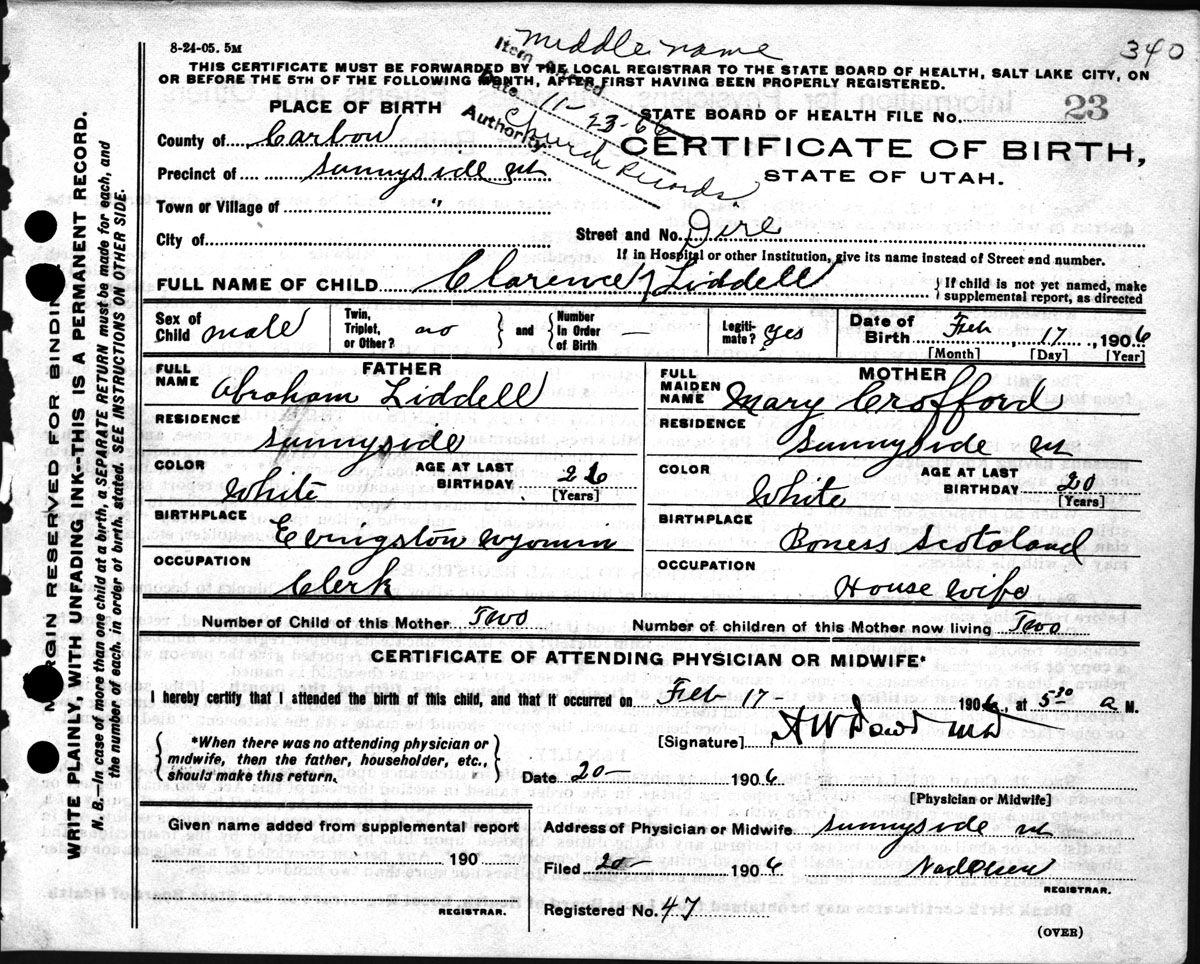 8-24-05. 5M
middle name
340
THIS CERTIFICATE MUST BE FORWARDED BY THE LOCAL REGISTRAR TO THE STATE BOARD OF HEALTH, SALT LAKE CITY, ON
OR BEFORE THE 5TH OF THE FOLLOWING MONTH, AFTER FIRST HAVING BEEN PROPERLY REGISTERED.
Item
Date 11-23-66
Authority Church Records
PLACE OF BIRTH
STATE BOARD OF HEALTH FILE No. 23
County of Carbon
CERTIFICATE OF BIRTH,
Precinct of Sunnyside Ut
STATE OF UTAH.
Town or Village of "
City of
Street and No.
Dire
If in Hospital or other Institution, give its name instead of Street and number.
FULL NAME OF CHILD Clarence Liddell
{ If child is not yet named, make
supplemental report, as directed
Sex of Child male
Twin, Triplet, or Other? no } and { Number In Order of Birth —
Legiti- mate? yes
Date of Birth Feb 17, 1906
[Month] [Day] [Year]
FATHER
MOTHER
FULL NAME Abraham Liddell
FULL MAIDEN NAME Mary Crofford
RESIDENCE Sunnyside
RESIDENCE Sunnyside Ut
COLOR White
AGE AT LAST BIRTHDAY 26 [Years]
COLOR White
AGE AT LAST BIRTHDAY 20 [Years]
BIRTHPLACE Evingston Wyomin
BIRTHPLACE Boness Scotoland
OCCUPATION Clerk
OCCUPATION House Wife
Number of Child of this Mother Two
Number of children of this Mother now living Two
CERTIFICATE OF ATTENDING PHYSICIAN OR MIDWIFE*
I hereby certify that I attended the birth of this child, and that it occurred on Feb 17 1906, at 5-30 a M.
{ *When there was no attending physician or
midwife, then the father, householder, etc.,
should make this return. }
[Signature] A W Dowd MD
Date 20- 1906
[Physician or Midwife]
Given name added from supplemental report
190
REGISTRAR.
Address of Physician or Midwife Sunnyside Ut
Filed 20- 1906
REGISTRAR.
Registered No. 47
(OVER)
MARGIN RESERVED FOR BINDING
WRITE PLAINLY, WITH UNFADING INK--THIS IS A PERMANENT RECORD.
N. B. In case of more than one child at a birth, a SEPARATE RETURN must be made for each, and
the number of each, in order of birth, stated. SEE INSTRUCTIONS ON OTHER SIDE.